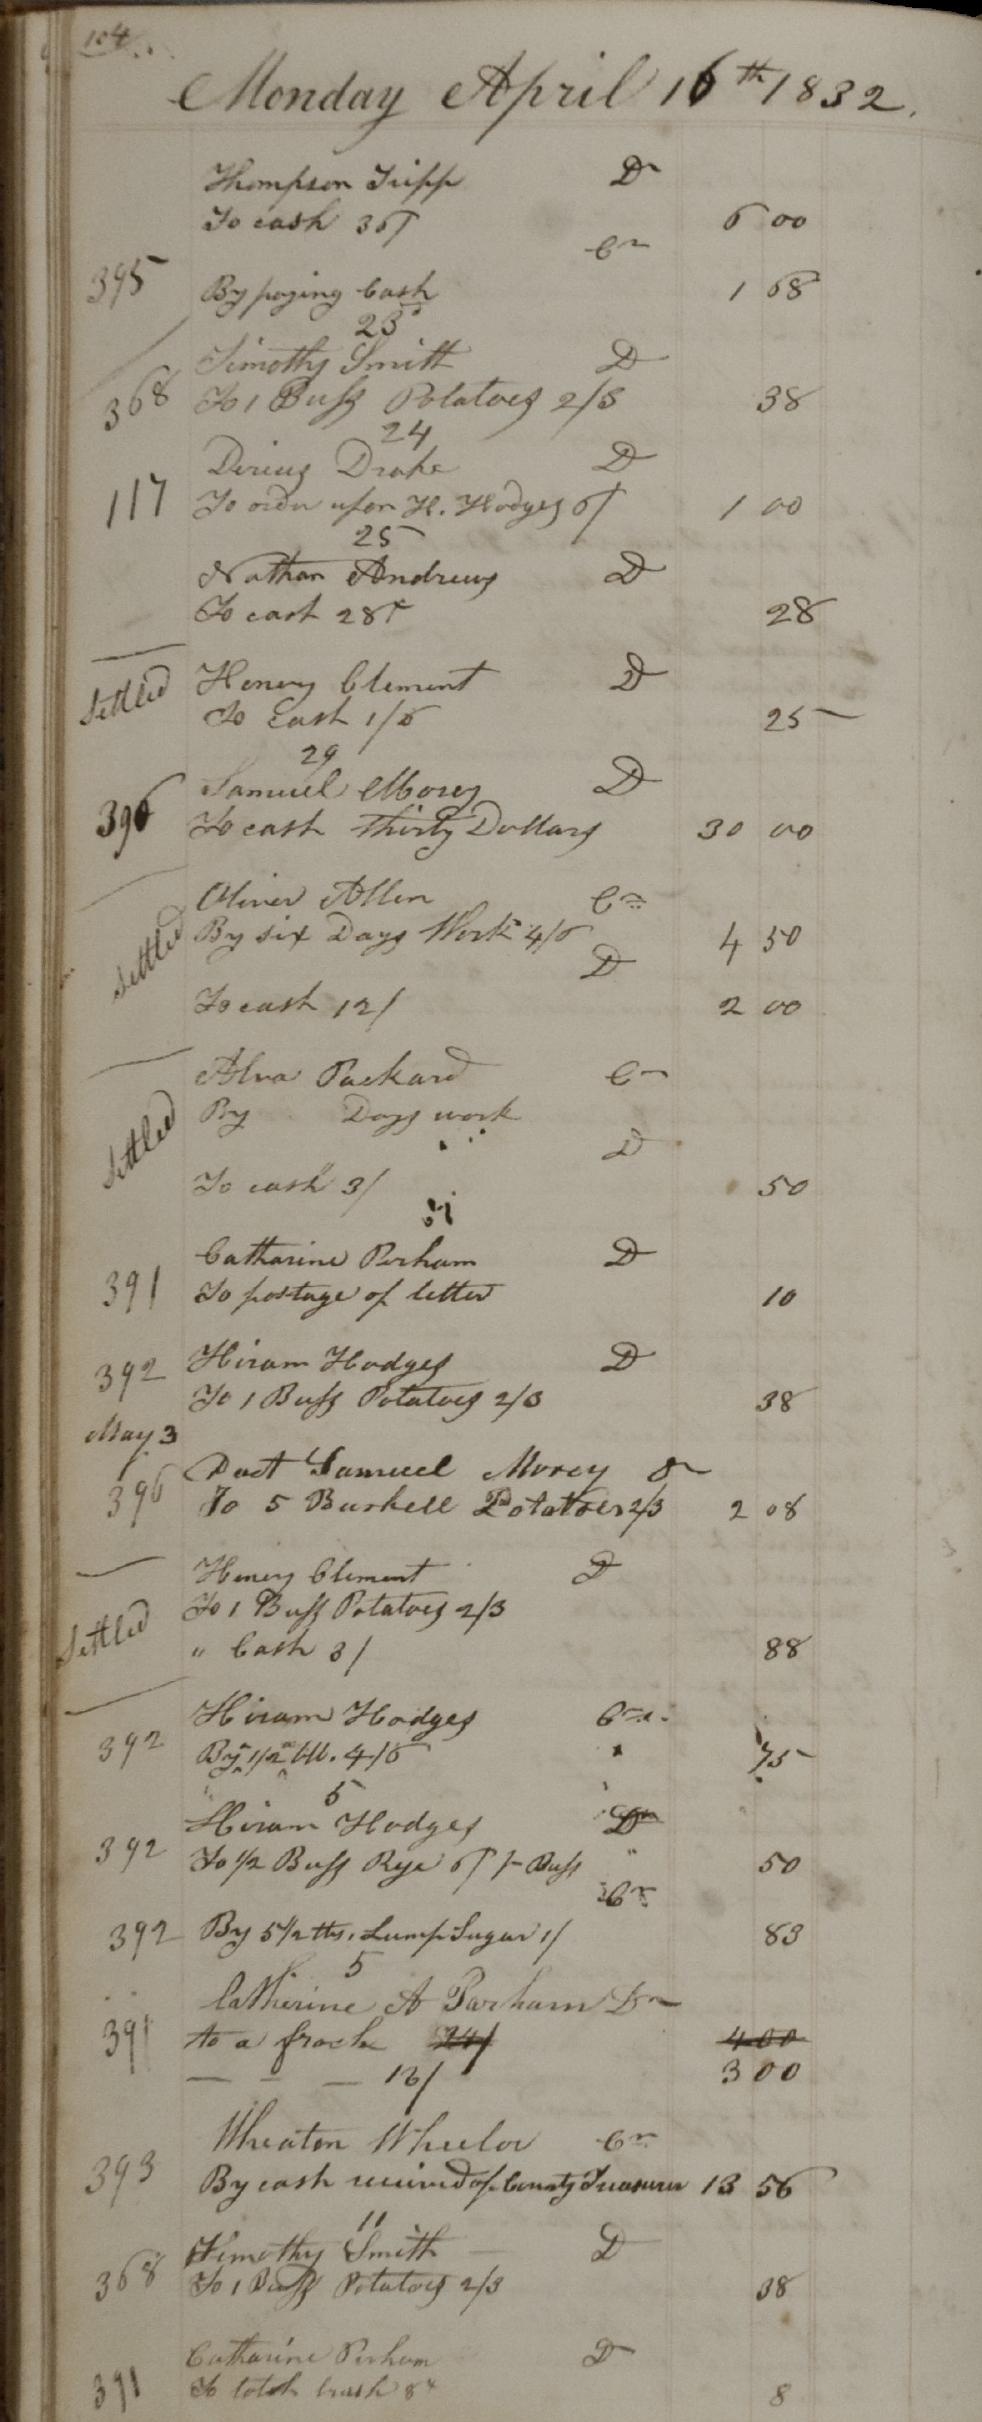 104
Monday April 16th 1832.
Thompson Tripp Dr
To cash 36/ 6 00
Cr
395 By paying Cash 1 68
23d
Timothy Smith D
368 To 1 Bush Potatoes 2/3 38
24
Darius Drake D
117 To order upon H. Hodges 6/ 1 00
25
Nathan Andrews D
To cash 28c 28
Settled Henery Clement D
To Cash 1/6 25
29
Samuel Morey D
396 To cash Thirty Dollars 30 00
Oliver Allen Cr
Settled By six Days Work 4/6 4 50
D
To cash 12/ 2 00
Alva Packard Cr
Settled By Days work
D
To cash 3/ 50
Catharine Perham D
391 To postage of letter 10
392 Hiram Hodges D
To 1 Bush Potatoes 2/3 38
May 3
Doct Samuel Morey Dr
396 To 5 Bushell Potatoes 2/3 2 08
Henery Clement D
Settled To 1 Bush Potatoes 2/3
" Cash 3/ 88
Hiram Hodges Cr.
392 By 1/2 4/6 75
5
Hiram Hodges Dr
392 To 1/2 Bush Rye 6/ Bush 50
Cr
392 By 5 1/2 lbs. Lump Sugar 1/ 83
5
Catherine A Parham Dr
391 to a frock 24/ 4 00
— — — 18/ 3 00
Wheaton Wheeler Cr
393 By cash received of County Treasurer 13 56
11
Timothy Smith D
368 To 1 Bush Potatoes 2/3 38
Catharine Perham D
391 To tooth brush 8c 8